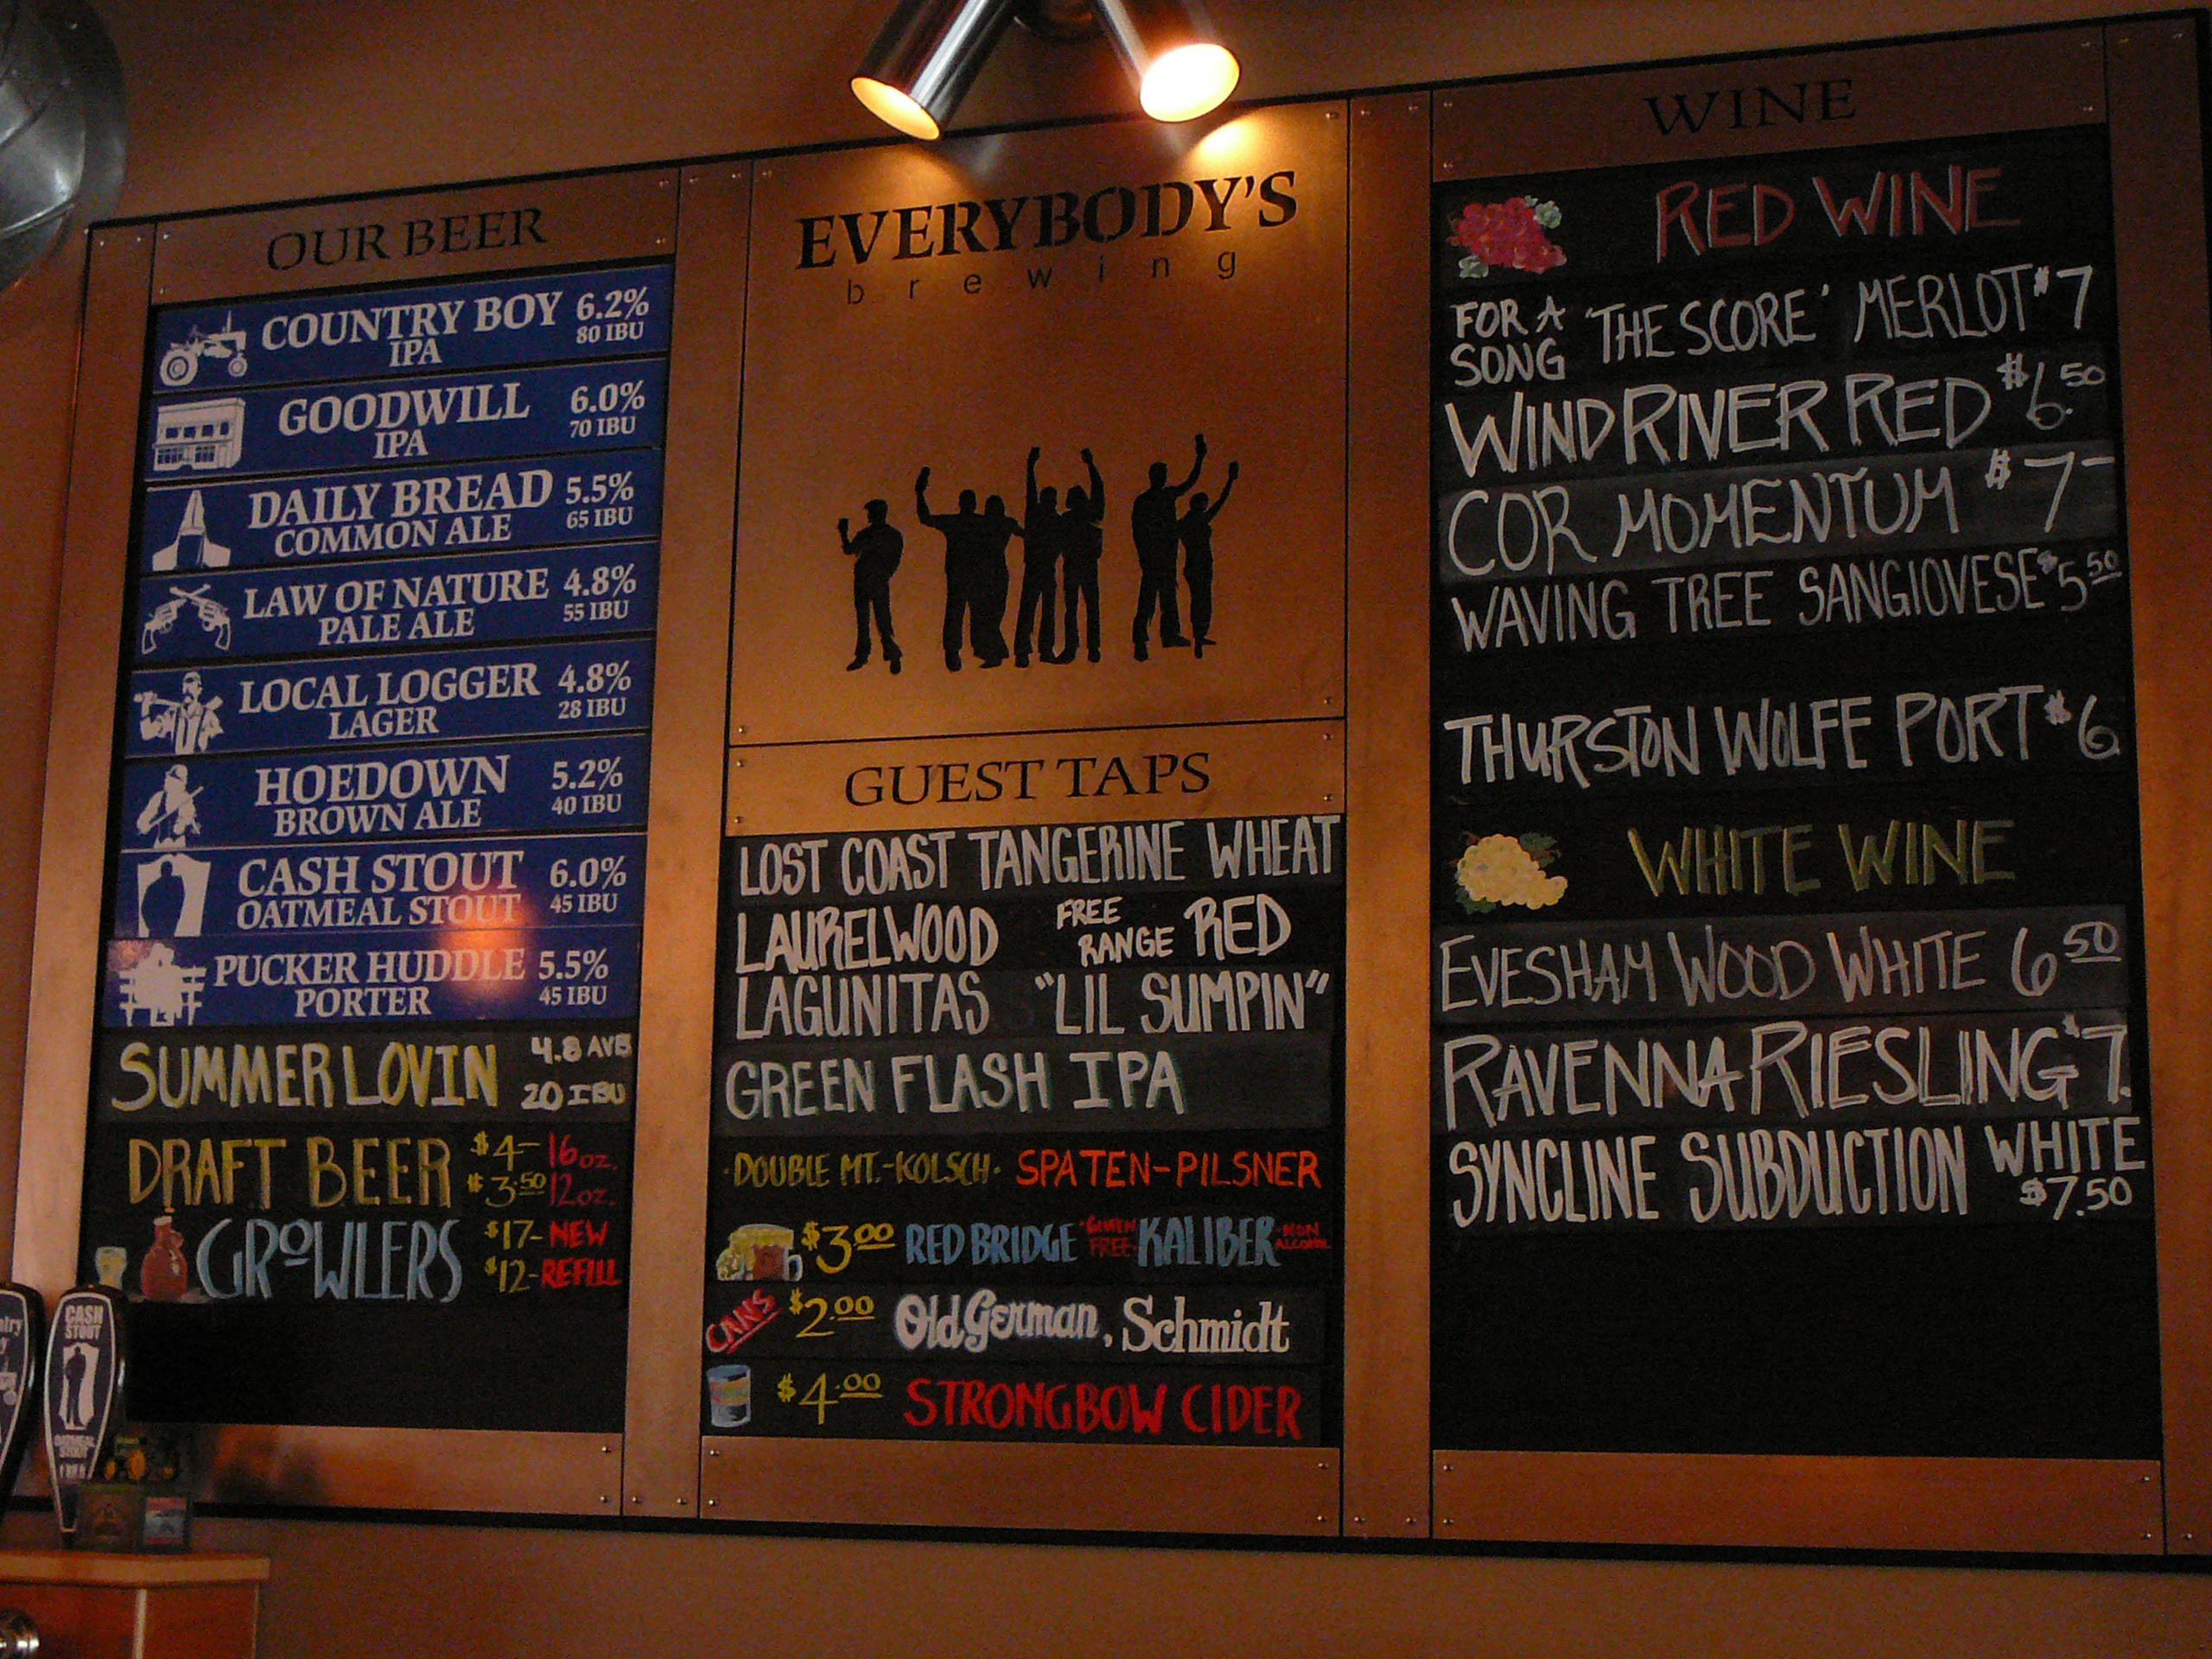 OUR BEER
COUNTRY BOY 6.2%
IPA 80 IBU
GOODWILL 6.0%
IPA 70 IBU
DAILY BREAD 5.5%
COMMON ALE 65 IBU
LAW OF NATURE 4.8%
PALE ALE 55 IBU
LOCAL LOGGER 4.8%
LAGER 28 IBU
HOEDOWN 5.2%
BROWN ALE 40 IBU
CASH STOUT 6.0%
OATMEAL STOUT 45 IBU
PUCKER HUDDLE 5.5%
PORTER 45 IBU
SUMMER LOVIN 4.8 AVB
20 IBU
DRAFT BEER $4- 16oz.
$3.50 12oz.
GROWLERS $17- NEW
$12- REFILL
CASH
STOUT
OATMEAL
STOUT
EVERYBODY'S
brewing
GUEST TAPS
LOST COAST TANGERINE WHEAT
LAURELWOOD FREE RANGE RED
LAGUNITAS "LIL SUMPIN"
GREEN FLASH IPA
·DOUBLE MT.-KOLSCH· SPATEN-PILSNER
$3.00 RED BRIDGE ·GLUTEN FREE· KALIBER ·NON ALCOHOL
CANS $2.00 Old German, Schmidt
$4.00 STRONGBOW CIDER
WINE
RED WINE
FOR A SONG 'THE SCORE' MERLOT $7
WIND RIVER RED $6.50
COR MOMENTUM $7-
WAVING TREE SANGIOVESE $5.50
THURSTON WOLFE PORT $6
WHITE WINE
EVESHAM WOOD WHITE 6 50
RAVENNA RIESLING $7.
SYNCLINE SUBDUCTION WHITE
$7.50